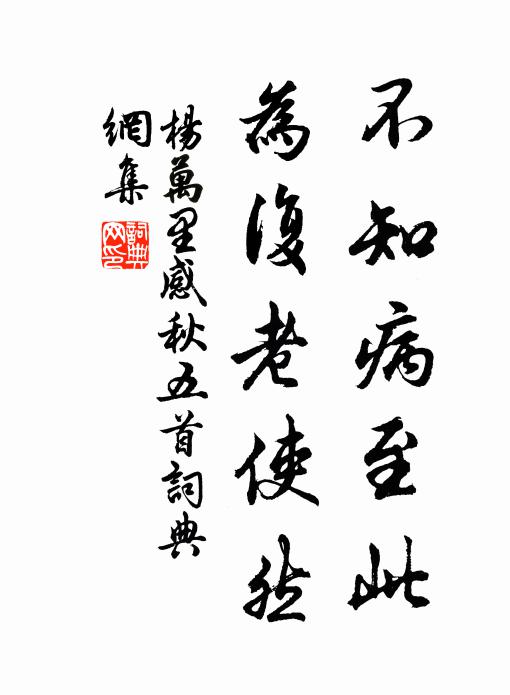 不知病至此
為復老使然
楊萬里感秋五首詞典
網集
詞典
网印